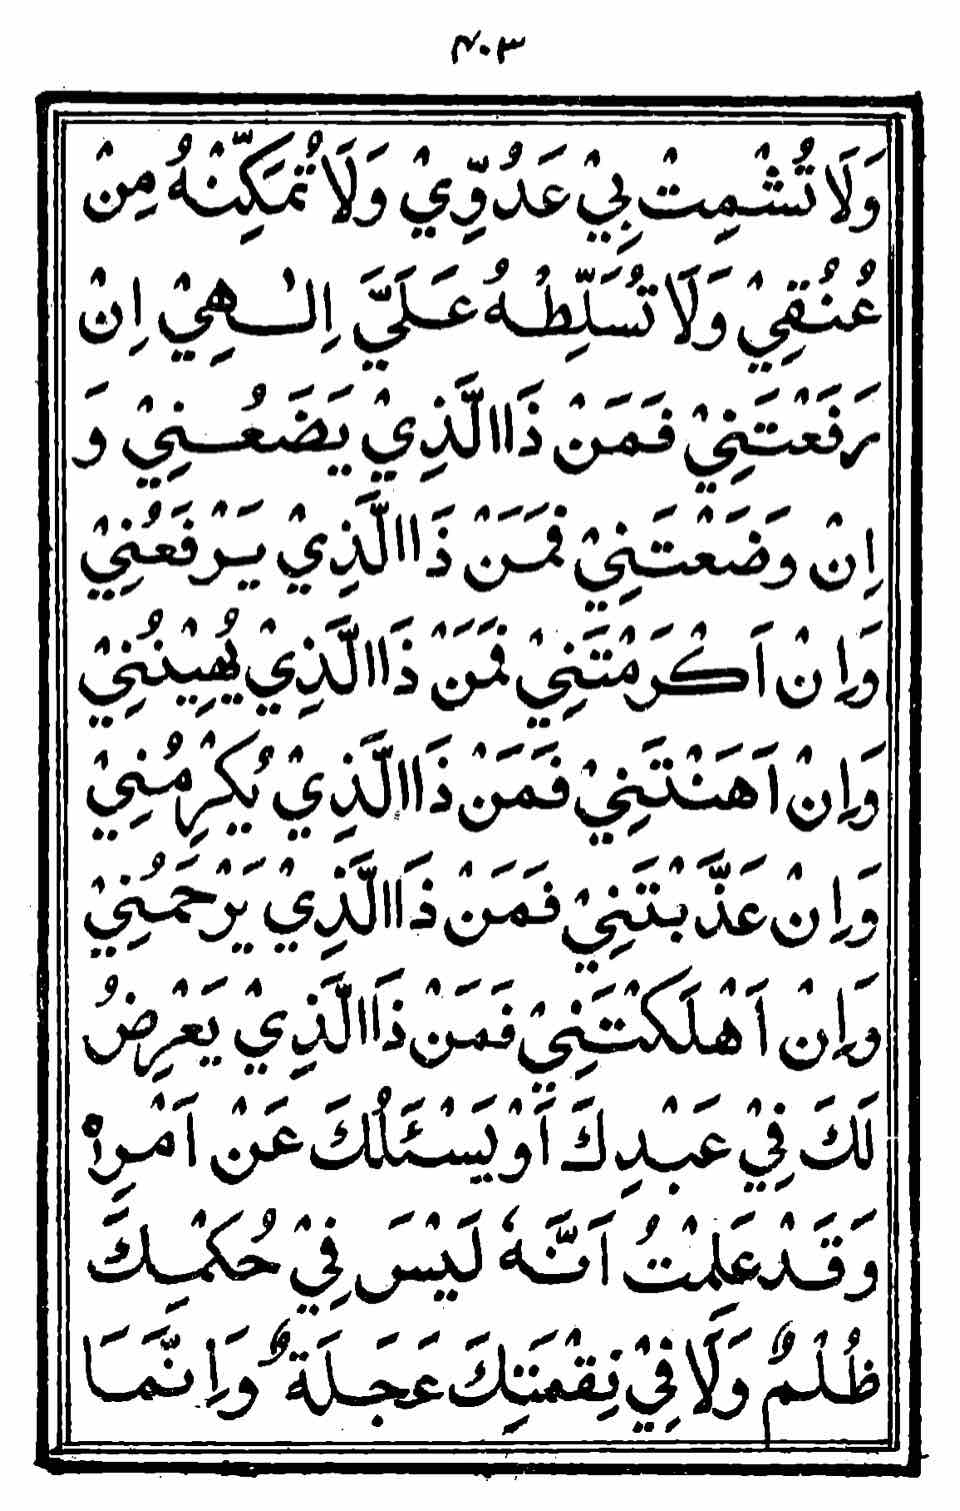 ۴۰۳
وَلَا تُشْمِتْ بِيْ عَدُوِّيْ وَلَا تُمَكِّنْهُ مِنْ
عُنُقِيْ وَلَا تُسَلِّطْهُ عَلَيَّ اِلٰهِيْ اِنْ
رَفَعْتَنِيْ فَمَنْ ذَا الَّذِيْ يَضَعُنِيْ وَ
اِنْ وَضَعْتَنِيْ فَمَنْ ذَا الَّذِيْ يَرْفَعُنِيْ
وَاِنْ اَكْرَمْتَنِيْ فَمَنْ ذَا الَّذِيْ يُهِيْنُنِيْ
وَاِنْ اَهَنْتَنِيْ فَمَنْ ذَا الَّذِيْ يُكْرِمُنِيْ
وَاِنْ عَذَّبْتَنِيْ فَمَنْ ذَا الَّذِيْ يَرْحَمُنِيْ
وَاِنْ اَهْلَكْتَنِيْ فَمَنْ ذَا الَّذِيْ يَعْرِضُ
لَكَ فِيْ عَبْدِكَ اَوْ يَسْئَلُكَ عَنْ اَمْرِهٖ
وَقَدْ عَلِمْتُ اَنَّهٗ لَيْسَ فِيْ حُكْمِكَ
ظُلْمٌ وَلَا فِيْ نِقْمَتِكَ عَجَلَةٌ وَاِنَّمَا